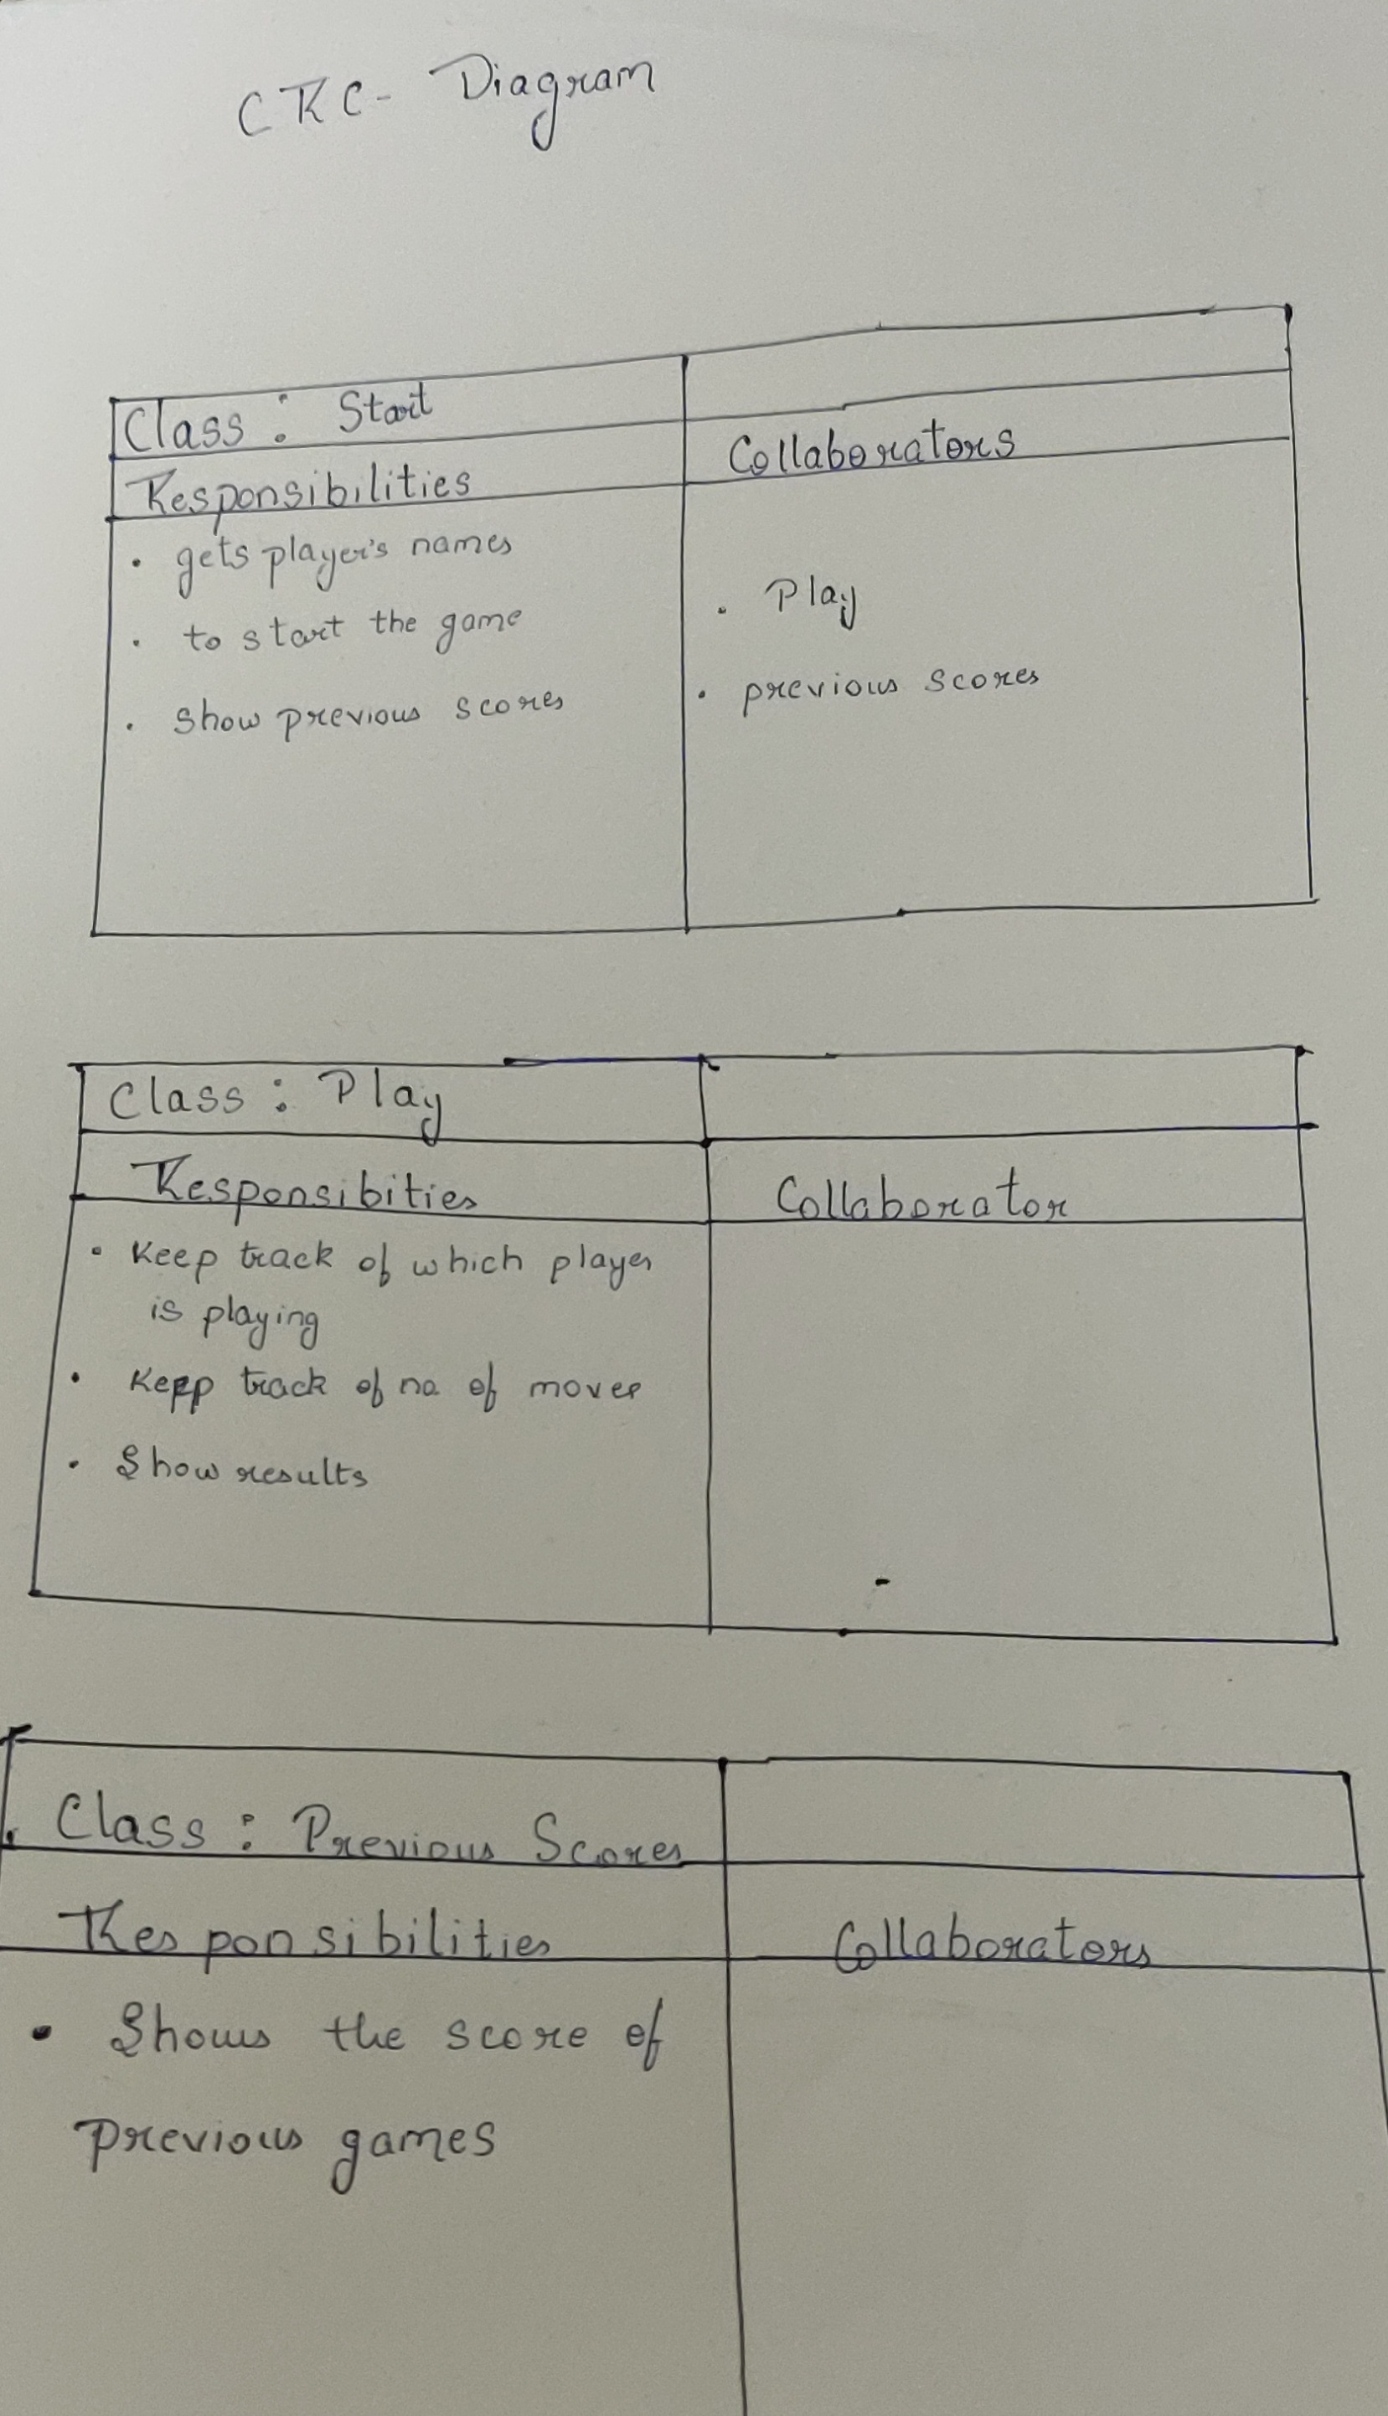 CRC- Diagram
Class : Start
Responsibilities
Collaborators
. gets player's names
. to start the game
. show previous scores
. Play
. previous scores
Class : Play
Responsibities
Collaborator
• Keep track of which player
is playing
• Keep track of no of moves
• Show results
Class : Previous Scores
Responsibilities
Collaborators
• Shows the score of
previous games